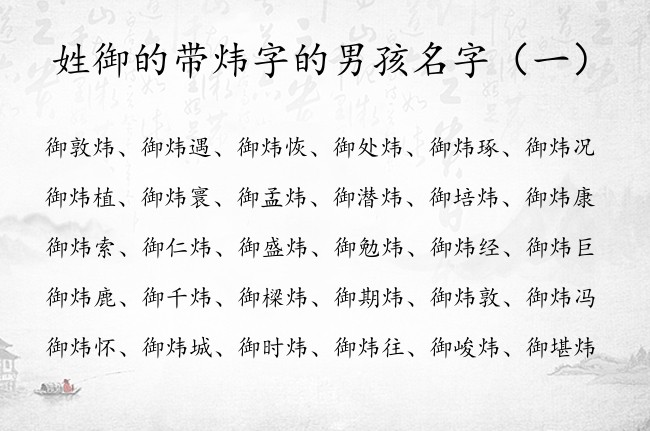 姓御的带炜字的男孩名字（一）
御敦炜、御炜遇、御炜恢、御处炜、御炜琢、御炜况
御炜植、御炜寰、御孟炜、御潜炜、御培炜、御炜康
御炜索、御仁炜、御盛炜、御勉炜、御炜经、御炜巨
御炜鹿、御千炜、御樑炜、御期炜、御炜敦、御炜冯
御炜怀、御炜城、御时炜、御炜往、御峻炜、御堪炜